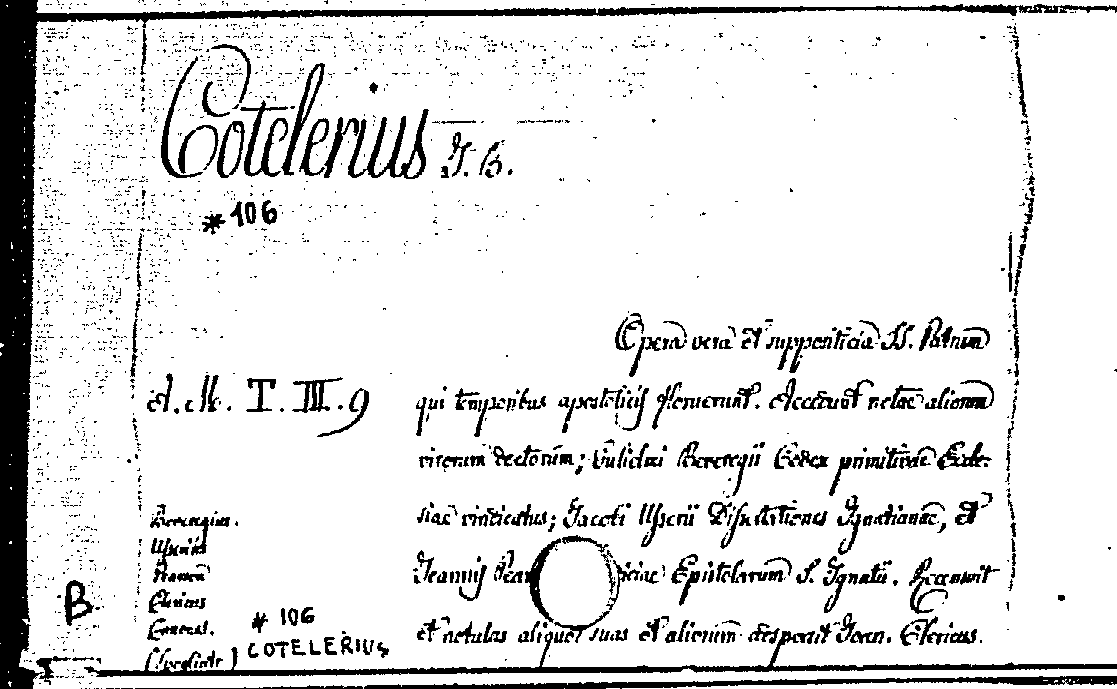 Cotelerius J. B.
* 106
Opera vera et supposititia SS. Patrum
A. M. T. III. 9 qui temporibus apostolicis floruerunt. Accedunt notae aliorum
virorum doctorum; Gulielmi Beveregii Codex primitivae Eccle-
Beveregius. siae vindicatus; Jacobi Usserii Dissertationes Ignatianae, et
Usserius
Joannis Epistolarum S. Ignatii. Recensuit
Clericus
B
Eccles. * 106 et notulas aliquot suas et aliorum Joan. Clericus.
COTELERIUS